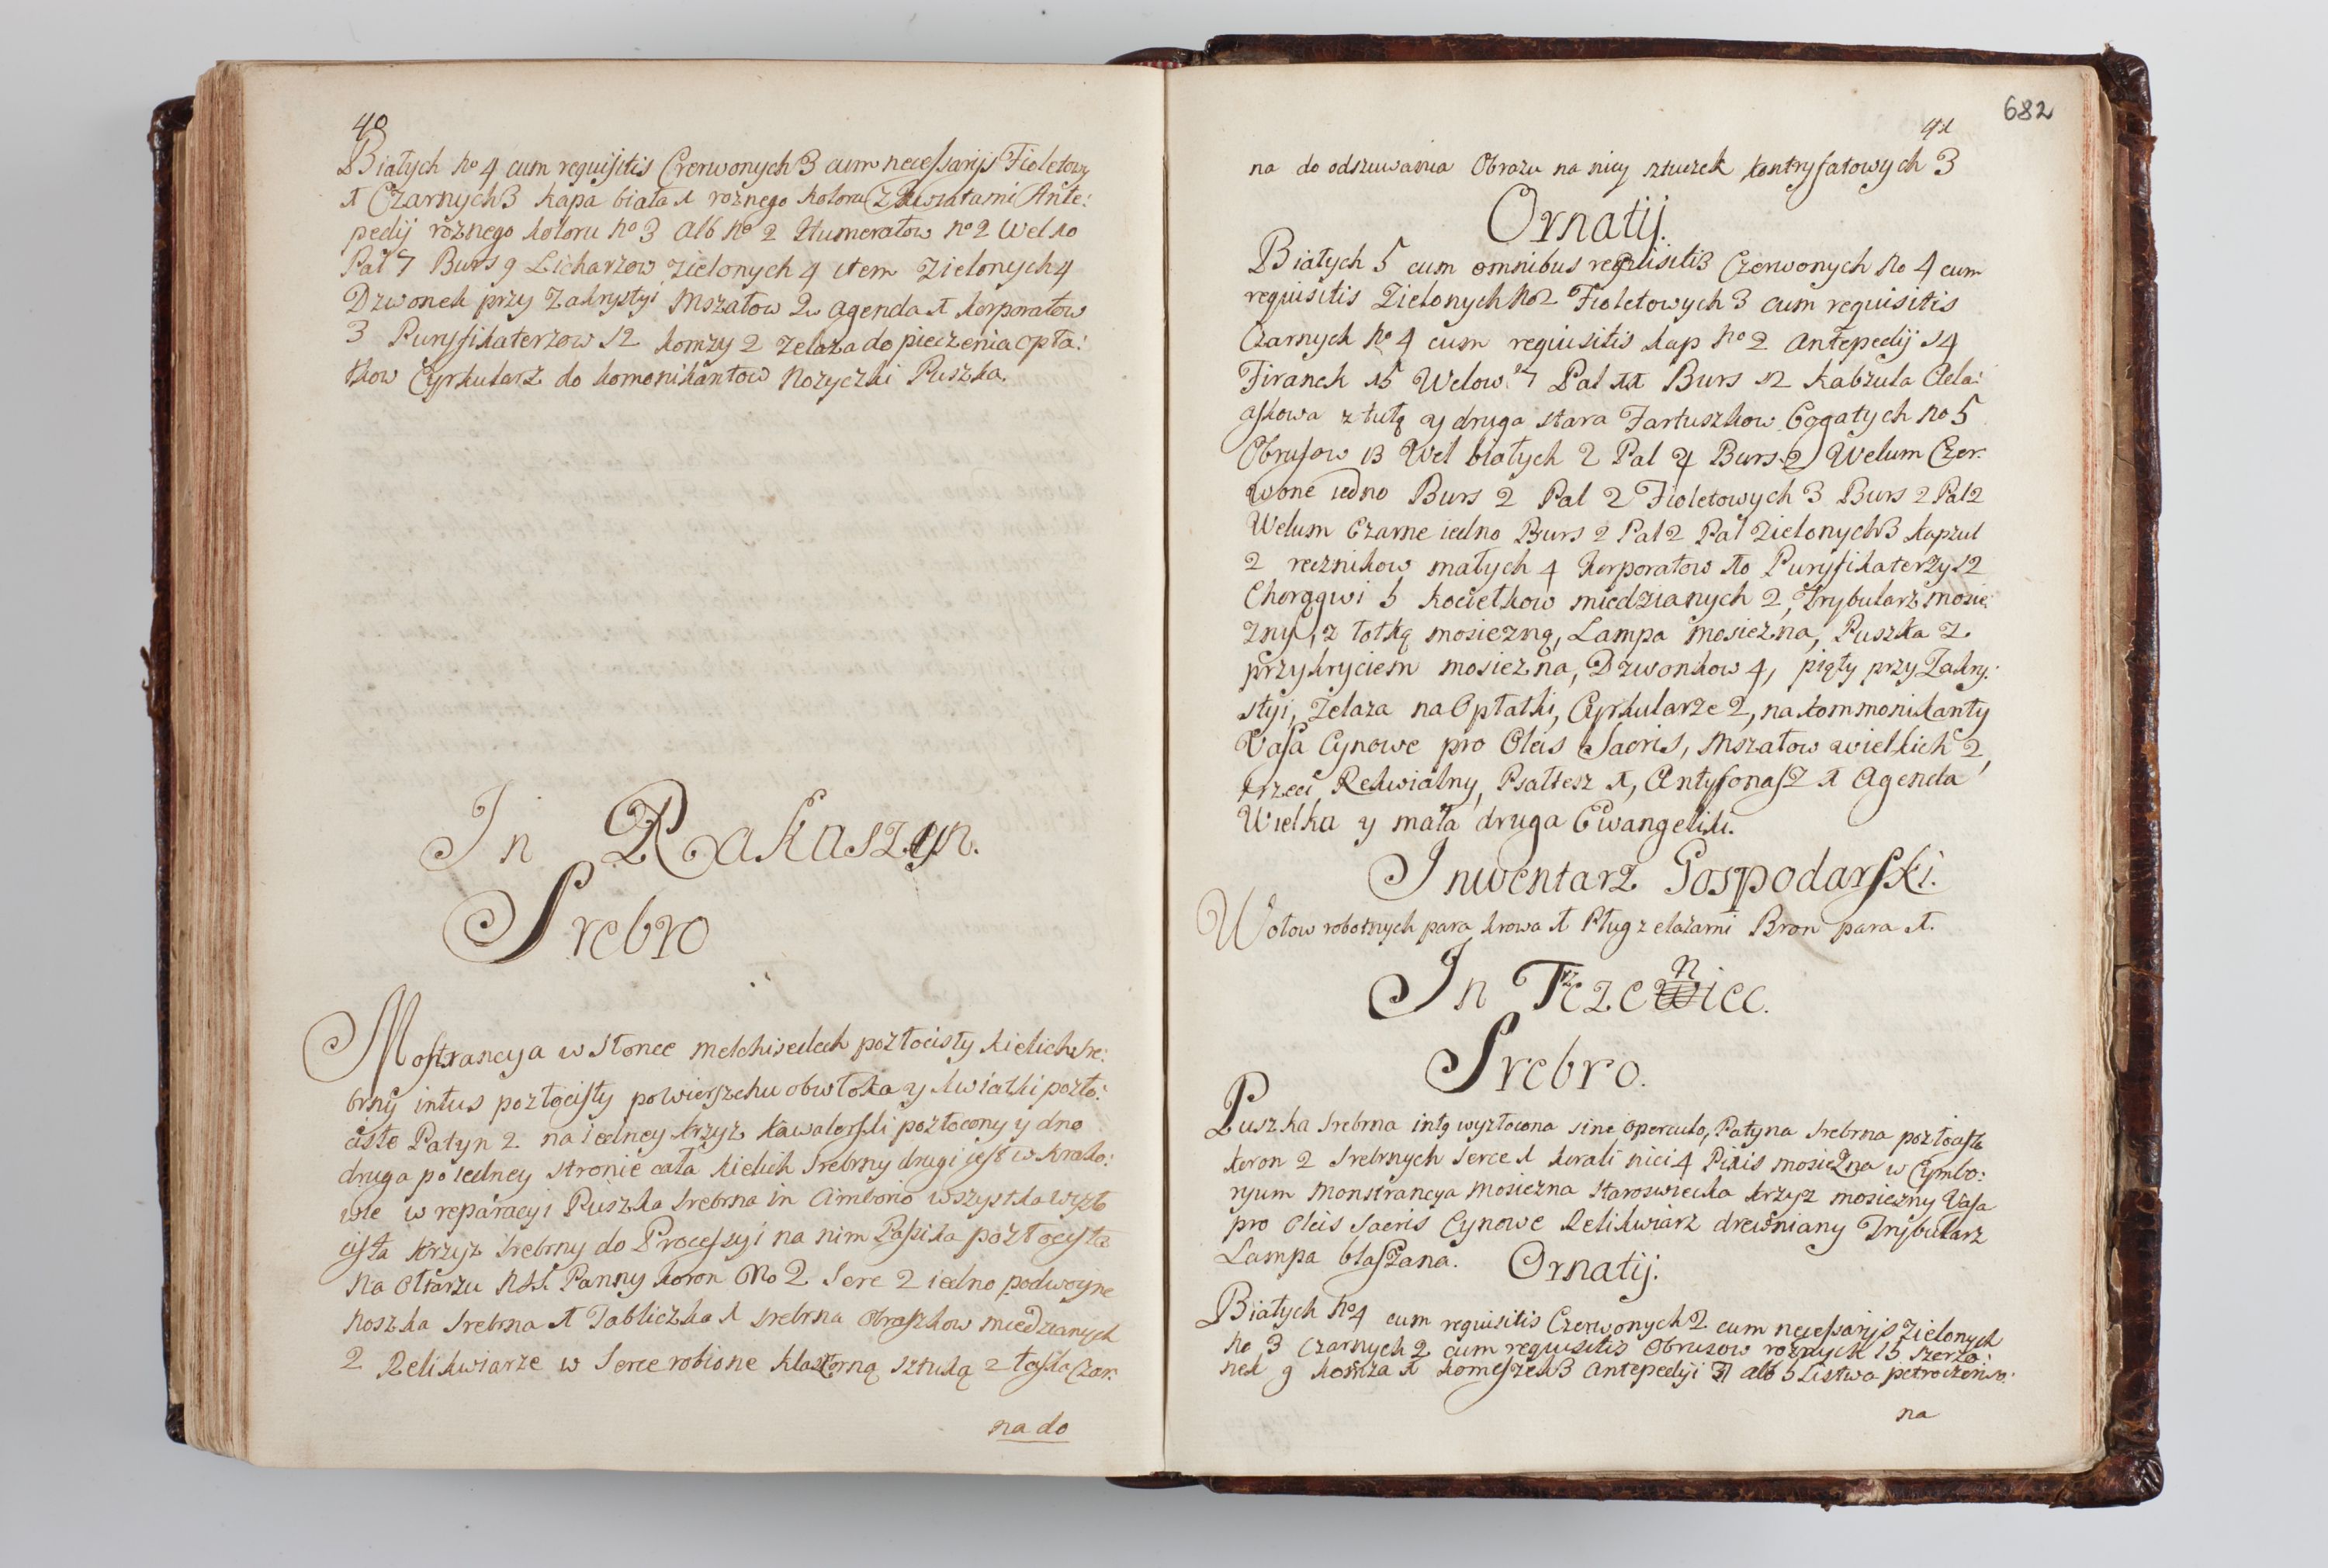 40
Białych no 4 cum requisitis Czerwonych 3 cum necessarijs Fioletowy
1 Czarnych 3 kapa biała 1 roznego koloru 2 kwiatami Ante:
pedij roznego koloru no 3 Alb no 2 Humerałow no 2 Wel 10
Pal 7 Burs 9 Licharzow zielonych 4 item Zielonych 4
Dzwonek przy Zakrystyi Mszałow 2 agenda 1 korporałow
3 Puryfikaterzow 12 komży 2 zelaza do pieczenia opła:
tkow Cyrkularz do komonikantow Nozyczki Puszka.
In Rakaszyn.
Srebro
Mostrancya w słonce melchisedech pozłocisty kielich Sre:
brny intus pozłocisty powierszchu obwłoka y kwiatki pozło:
ciste Patyn 2 na iedney krzyz kawalerski pozłocony y dno
druga po iedney stronie cała kielich Srebrny drugi jest w Krako:
wie w reparacyi Puszka Srebrna in Cimborio wszystka wyzło
cista krzyz Srebrny do Processyi na nim Passika pozłocista
Na Ołtarzu NS. Panny koron No 2 Serc 2 iedno podwoyne
Noszka Srebrna 1 Tabliczka 1 srebrna Obraszkow miedzianych
2 Relikwiarze w Serce robione klasztorną sztuką 2 łaska Czar:
na do
682
41
na do odszuwania Obrazu na niey sztuczek kontryfałowych 3
Ornatij.
Białych 5 cum omnibus requisitis Czerwonych No 4 cum
requisitis Zielonych No 2 Fioletowych 3 cum requisitis
Czarnych No 4 cum requisitis kap No 2 Antepedij 14
Firanek 15 Welow 27 Pal 11 Burs 12 kabzula Ada:
askowa z tutą y druga stara Fartuszkow bogatych No 5
Obrusow 13 Wel białych 2 Pal 4 Burs 2 Welum Czer:
wone iedno Burs 2 Pal 2 Fioletowych 3 Burs 2 Pal 2
Welum Czarne iedno Burs 2 Pal 2 Pal Zielonych 3 kapzul
2 recznikow małych 4 korporałow 10 Puryfikaterzy 12
Chorągwi 5 kociełkow miedzianych 2, Trybularz mosię:
zny, z łotką mosiezną, Lampa mosiezna, Puszka z
przykryciem mosiezna, Dzwonkow 4, piąty przy Zakry:
styi, Zelaza na Opłatki, Cyrkularze 2, na kommonikanty
Vasa Cynowe pro Oleis Sacris, Mszałow wielkich 2,
trzeci Rekwialny, Psałtesz 1, Antyfonasz 1 Agenda
Wielka y mała druga Ewangelik.
Inwentarz Gospodarski.
Wołow robotnych para krowa 1 Pług z elazami Bron para 1.
In Trzeniec.
Srebro.
Puszka Srebrna intą wyzłocona sine operculo, Patyna Srebrna pozłocista
koron 2 Srebrnych Serce 1 korali nici 4 Pixis mosiezna w Cymbo:
ryum Monstrancya Mosiezna staroswiecka krzyz mosiezny Vasa
pro Oleis Sacris Cynowe Relikwiarz drewniany Trybularz
Lampa blaszana. Ornatij.
Białych No 4 cum requisitis Czerwonych 2 cum necessarijs Zielonych
No 3 Czarnych 2 cum requisitis Obrusow roznych 15 szerzo:
nek 9 komża 1 komeszek 3 Antepedyi 31 alb 5 Listwa
na